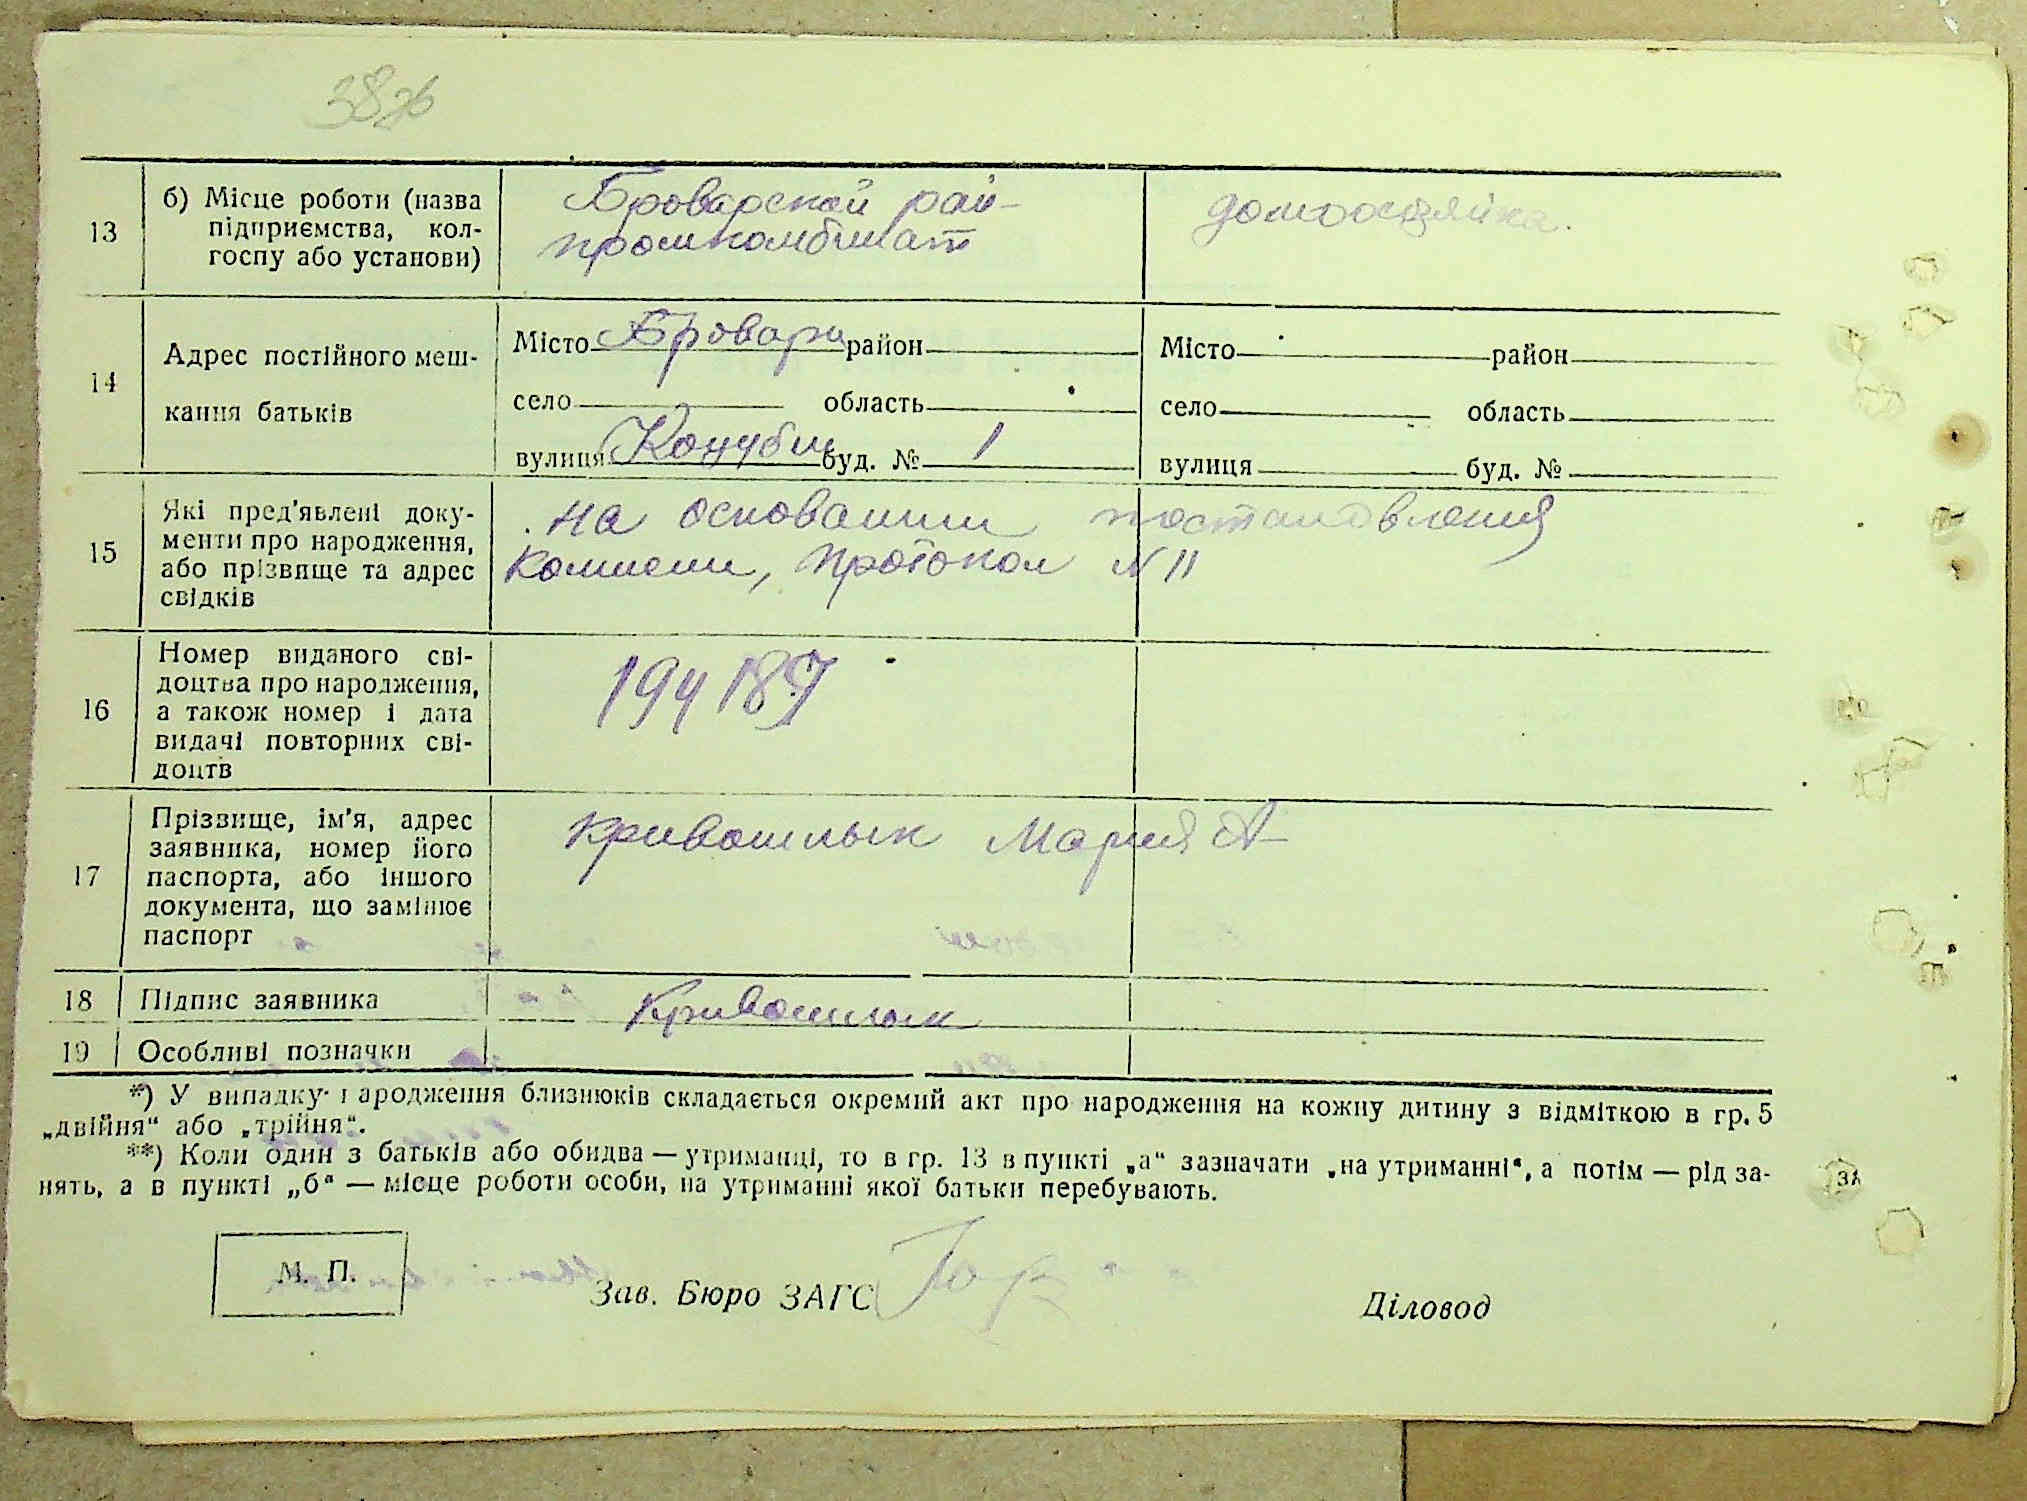 38
13
б) Місце роботи (назва
підприємства, кол-
госпу або установи)
Броварской рай-
промкомбинат
домохозяйка.
14
Адрес постійного меш-
кання батьків
Місто Бровари район
село область
вулиця буд. № 1
Місто район
село область
вулиця буд. №
15
Які пред'явлені доку-
менти про народження,
або прізвище та адрес
свідків
на основании постановления
комисии, протокол N 11
16
Номер виданого сві-
доцтва про народження,
а також номер і дата
видачі повторних сві-
доцтв
194189
17
Прізвище, ім'я, адрес
заявника, номер його
паспорта, або іншого
документа, що замінює
паспорт
Кривошлык Мария А
18
Підпис заявника
Кривошлык
19
Особливі позначки
*) У випадку народження близнюків складається окремий акт про народження на кожну дитину з відміткою в гр. 5
„двійня" або „трійня".
**) Коли один з батьків або обидва — утриманці, то в гр. 13 в пункті „а" зазначати „на утриманні", а потім — рід за-
нять, а в пункті „б" — місце роботи особи, на утриманні якої батьки перебувають.
М. П.
Зав. Бюро ЗАГС
Діловод